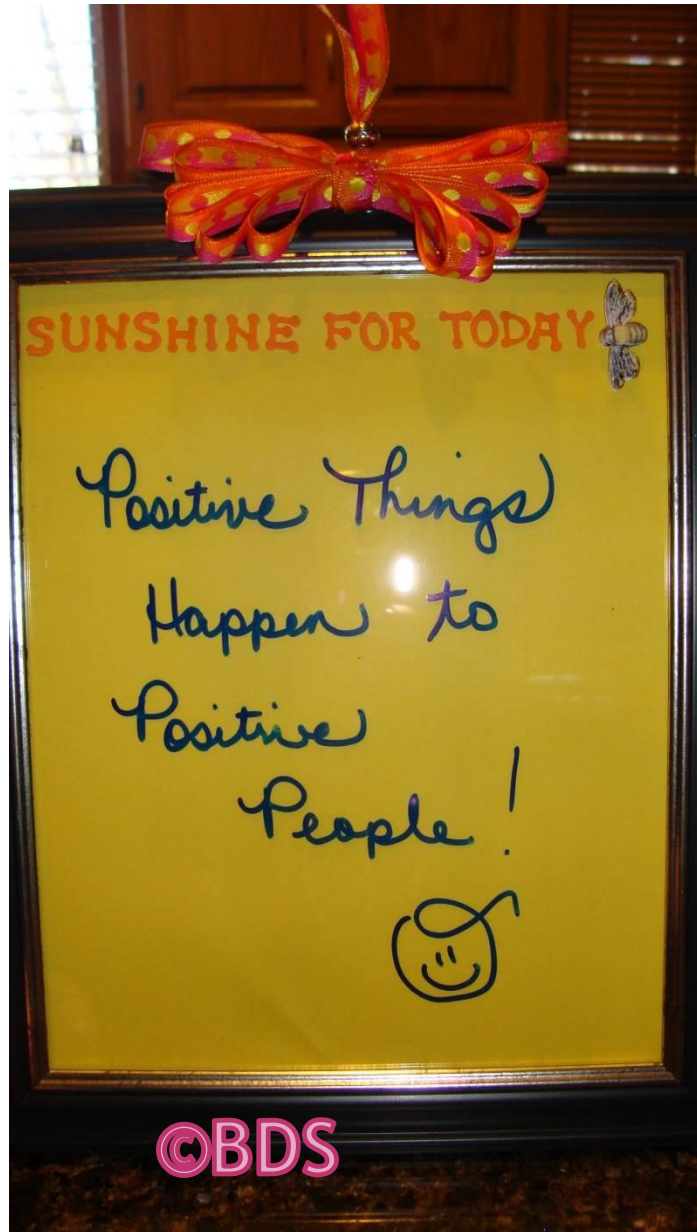 SUNSHINE FOR TODAY
Positive Things
Happen to
Positive
People!
©BDS